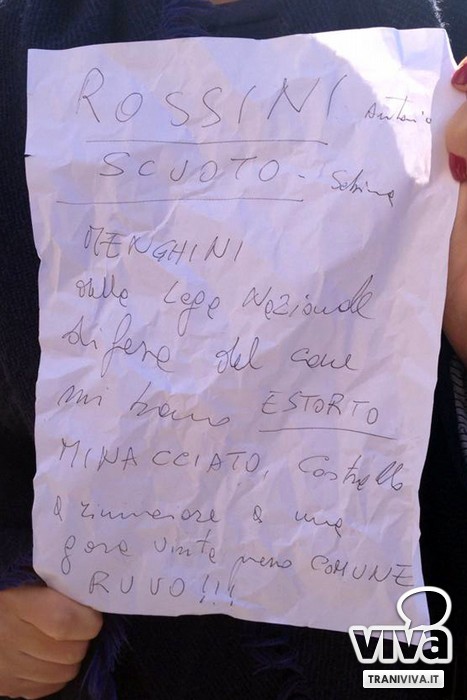 ROSSINI Antonio
SCUOTO - Sabina
MENGHINI
della Lega Nazionale
difesa del cane
mi hanno ESTORTO
MINACCIATO, Costretto
a rinunciare a una
gara vinta presso COMUNE
RUVO!!!
viva
TRANIVIVA.IT